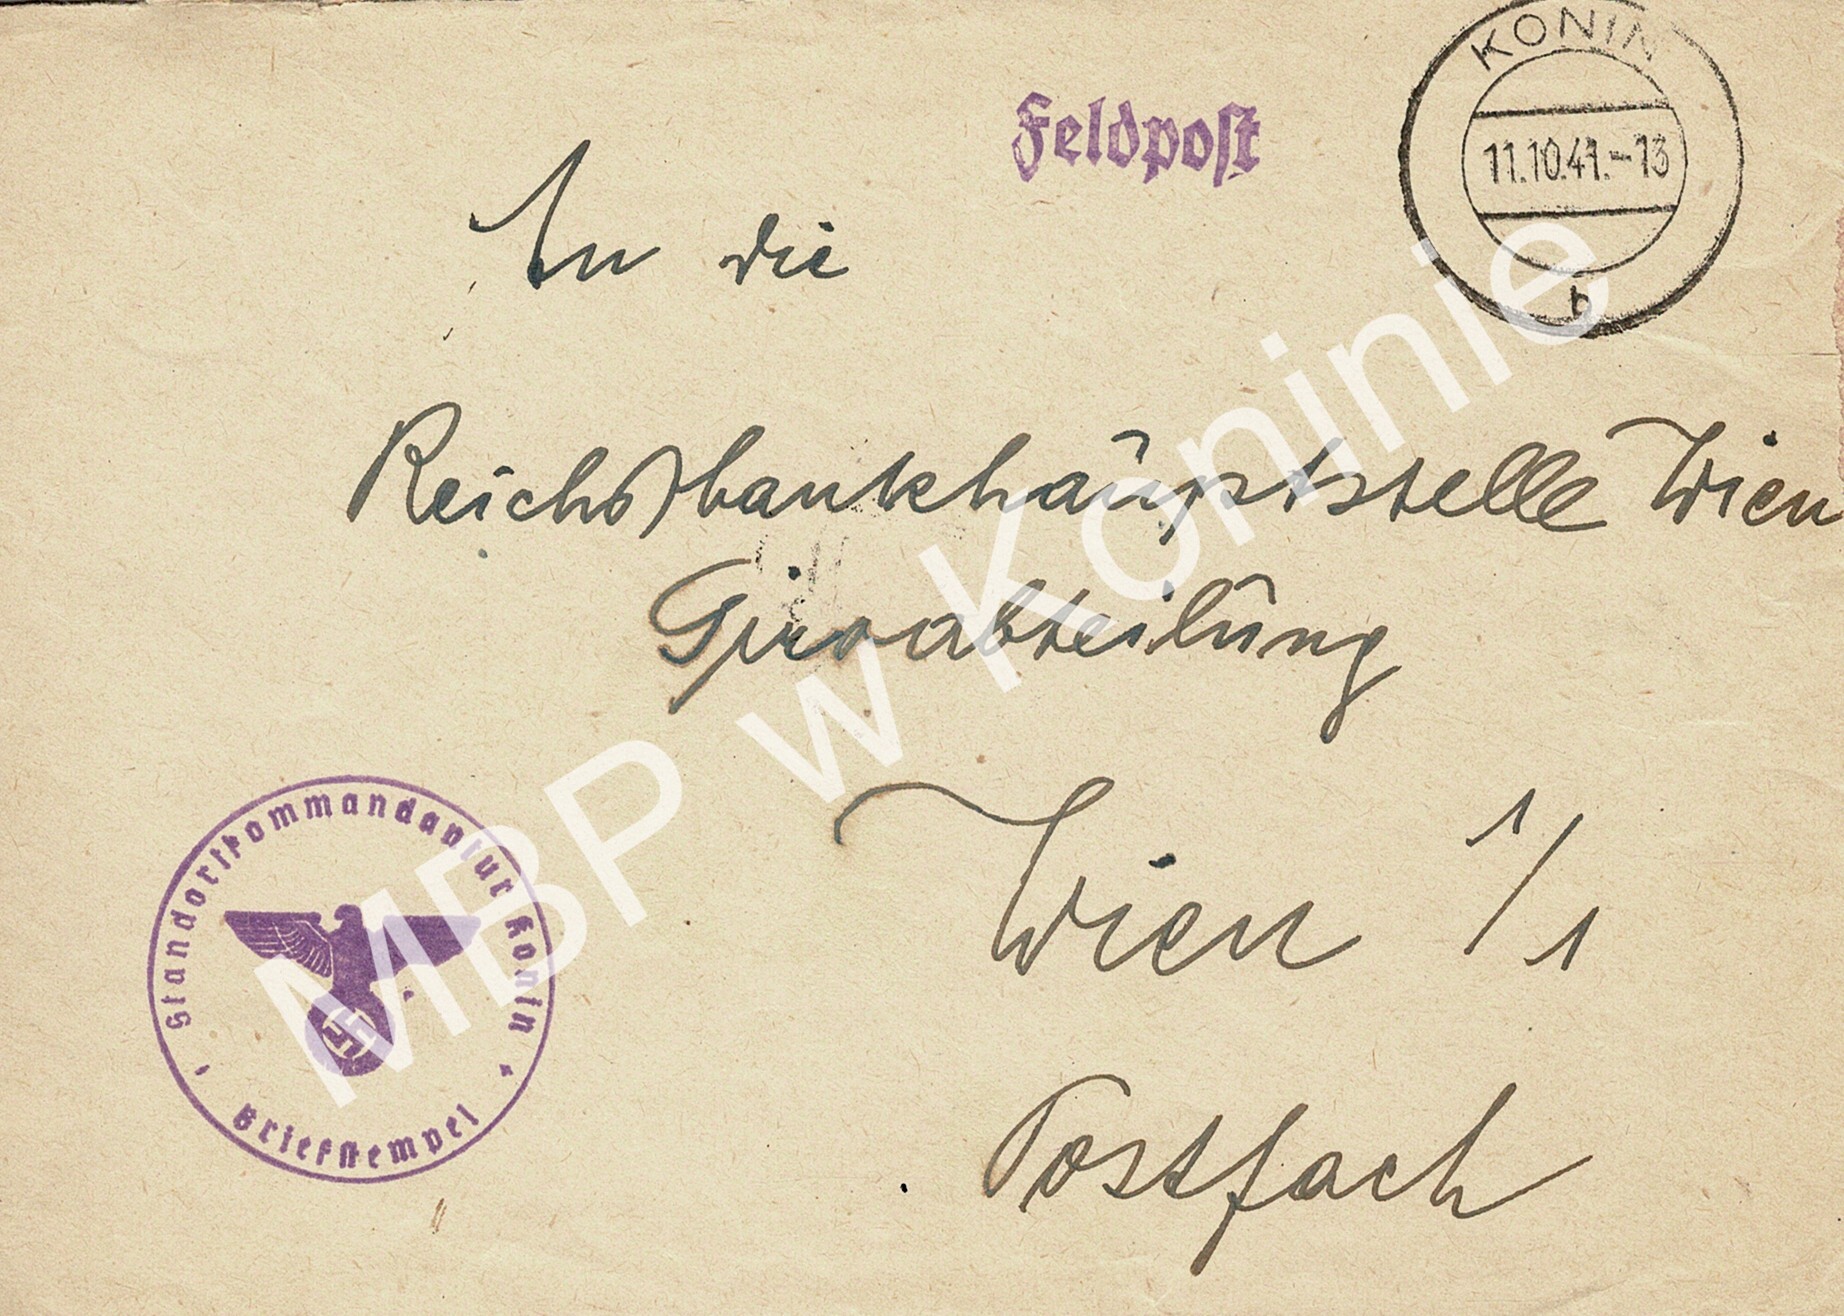 KONIN
11.10.41.-13
b
Feldpost
An die
Reichsbankhauptstelle Wien
Giroabteilung
Wien 1/1
Postfach
Standortkommandantur Konin
Briefstempel
MBP w Koninie